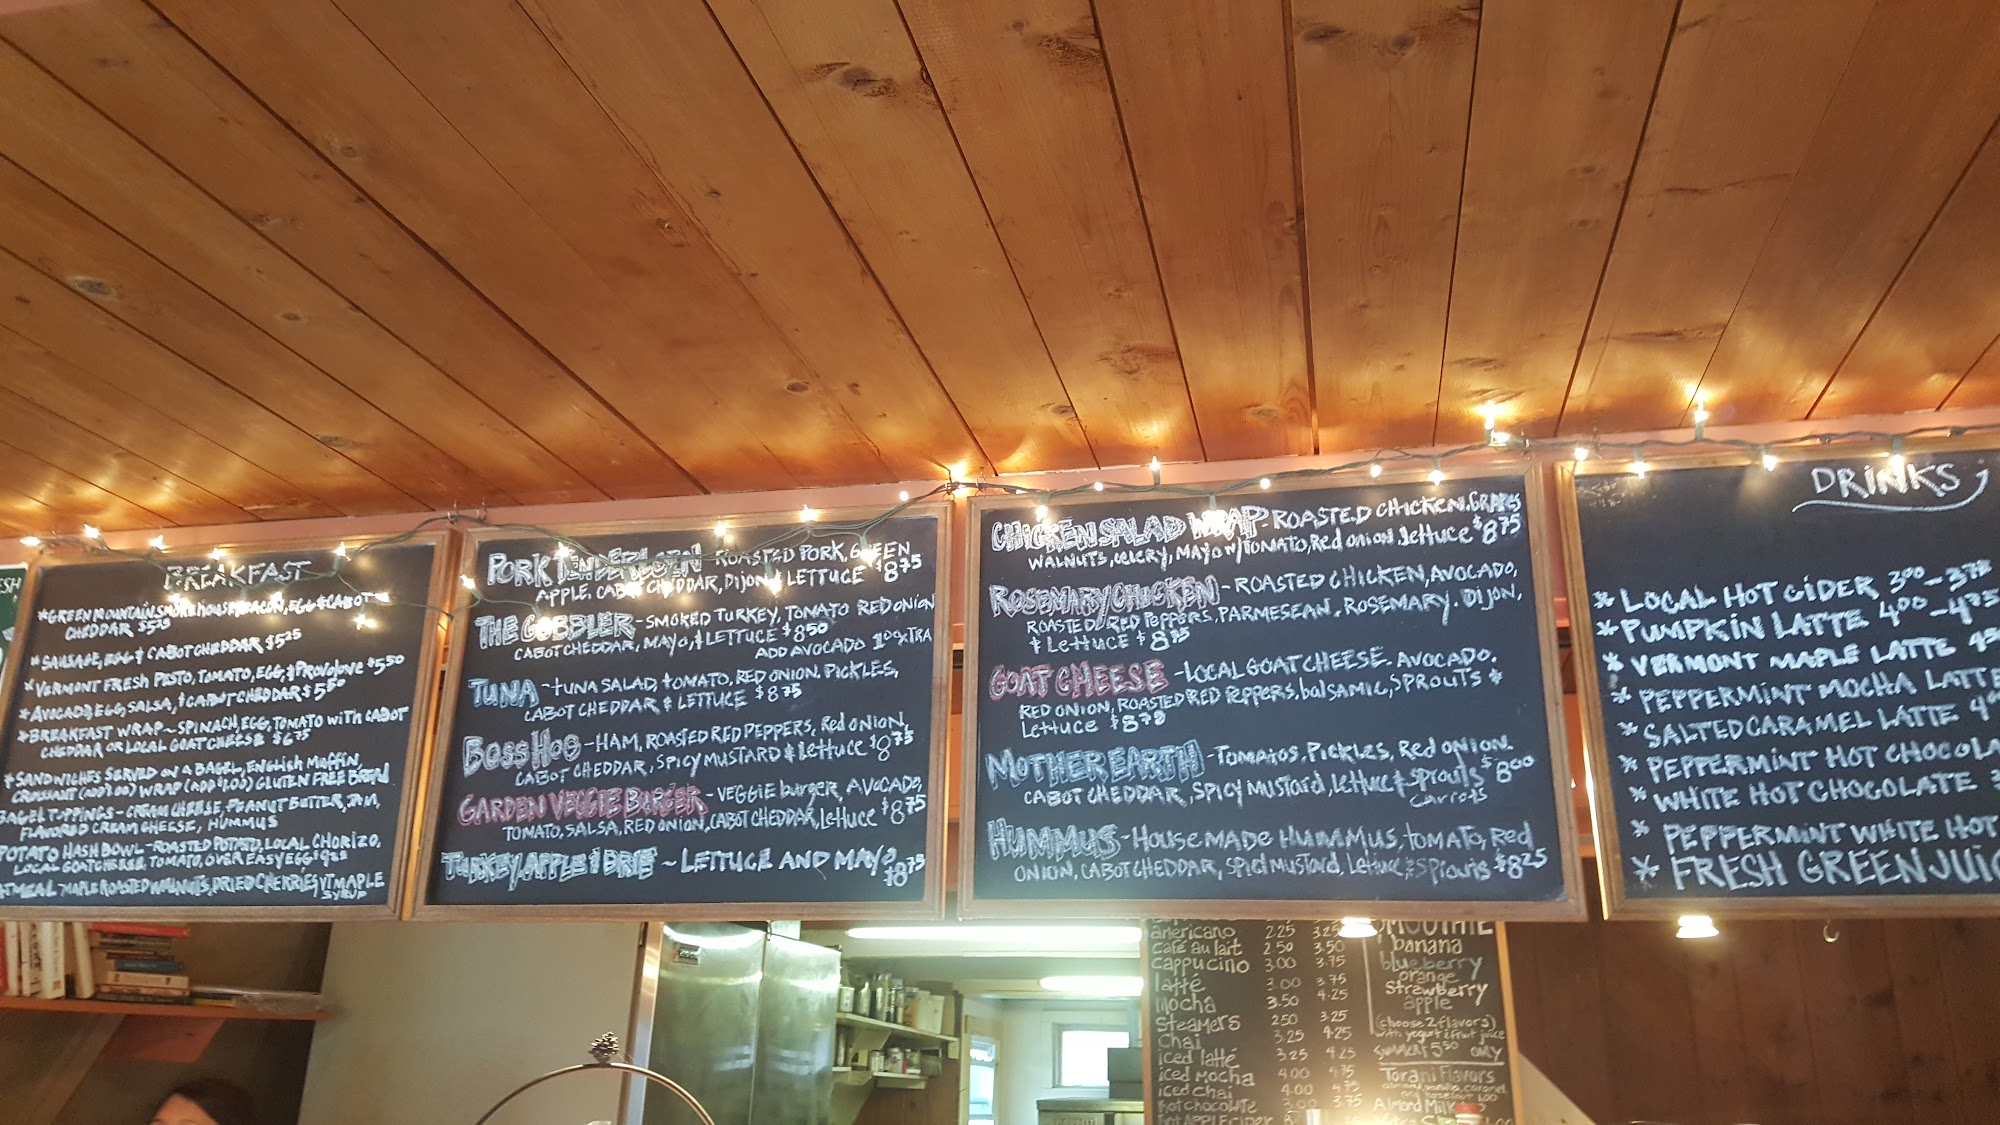 ESH
BREAKFAST
*GREEN MOUNTAIN SMOKEHOUSE BACON, EGG & CABOT
CHEDDAR $5.75
*SAUSAGE, EGG & CABOT CHEDDAR $5.25
*VERMONT FRESH PESTO, TOMATO, EGG, & PROVOLONE $5.50
*AVOCADO, EGG, SALSA, & CABOT CHEDDAR $5.50
*BREAKFAST WRAP~SPINACH, EGG, TOMATO WITH CABOT
CHEDDAR OR LOCAL GOAT CHEESE $6.75
*SANDWICHES SERVED ON A BAGEL, ENGLISH MUFFIN,
CROISSANT (ADD 1.00) WRAP (ADD $1.00) GLUTEN FREE BREAD
BAGEL TOPPINGS - CREAM CHEESE, PEANUT BUTTER, JAM,
FLAVORED CREAM CHEESE, HUMMUS
POTATO HASH BOWL - ROASTED POTATO, LOCAL CHORIZO,
LOCAL GOAT CHEESE, TOMATO, OVER EASY EGG
ATMEAL MAPLE ROASTED WALNUTS, DRIED CHERRIES, VT MAPLE
SYRUP
PORK TENDERLOIN - ROASTED PORK, GREEN
APPLE, CABOT CHEDDAR, DIJON & LETTUCE $8.75
THE GOBBLER - SMOKED TURKEY, TOMATO RED ONION
CABOT CHEDDAR, MAYO, & LETTUCE $8.50
ADD AVOCADO 1.00 XTRA
TUNA - TUNA SALAD, TOMATO, RED ONION, PICKLES,
CABOT CHEDDAR & LETTUCE $8.75
BOSS HOG - HAM, ROASTED RED PEPPERS, Red ONION,
CABOT CHEDDAR, SPICY MUSTARD & LETTUCE $8.75
GARDEN VEGGIE BURGER - VEGGIE BURGER, AVOCADO,
TOMATO, SALSA, RED ONION, CABOT CHEDDAR, LETTUCE $8.75
TURKEY, APPLE & BRIE ~ LETTUCE AND MAYO
$8.75
CHICKEN SALAD WRAP - ROASTED CHICKEN, GRAPES
WALNUTS, CELERY, MAYO W/TOMATO, Red ONION, Lettuce $8.75
ROSEMARY CHICKEN - ROASTED CHICKEN, AVOCADO,
ROASTED RED PEPPERS, PARMESEAN, ROSEMARY, DIJON,
& Lettuce $8.75
GOAT CHEESE - LOCAL GOAT CHEESE, AVOCADO,
RED ONION, ROASTED RED PEPPERS, balsamic, SPROUTS &
Lettuce $8.75
MOTHER EARTH - TOMATOS, Pickles, Red ONION,
CABOT CHEDDAR, SPICY MUSTARD, Lettuce & SPROUTS $8.00
CARROTS
HUMMUS - HOUSE MADE HUMMUS, TOMATO, Red
ONION, CABOT CHEDDAR, Spicy MUSTARD, Lettuce & SPROUTS $8.25
DRINKS
* LOCAL HOT CIDER 3.00 - 3.75
* PUMPKIN LATTE 4.00 - 4.75
* VERMONT MAPLE LATTE
* PEPPERMINT MOCHA LATTE
* SALTED CARAMEL LATTE
* PEPPERMINT HOT CHOCOLA
* WHITE HOT CHOCOLATE
* PEPPERMINT WHITE HOT
* FRESH GREEN JUIC
americano 2.25 3.25
café au lait 2.50 3.50
cappucino 3.00 3.75
latté 3.00 3.75
mocha 3.50 4.25
Steamers 2.50 3.25
Chai 3.25 4.25
iced latté 3.25 4.25
iced mocha 4.00 4.75
iced chai 4.00 4.75
Hot chocolate 3.00 3.75
Hot APPLE CIDER
SMOOTHIE
banana
blueberry
orange
strawberry
apple
(choose 2 flavors)
with yogurt & fruit juice
5.50 ONLY
Torani Flavors
Almond Milk